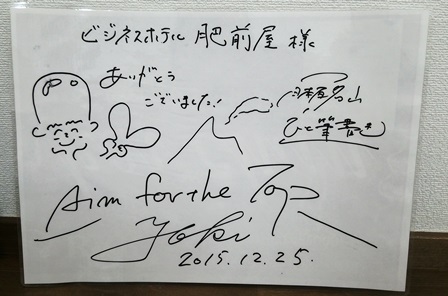 ビジネスホテル 肥前屋 様
ありがとう
ございました!
日本百名山
ひと筆書き
Aim for the Top
Yoki
2015.12.25.